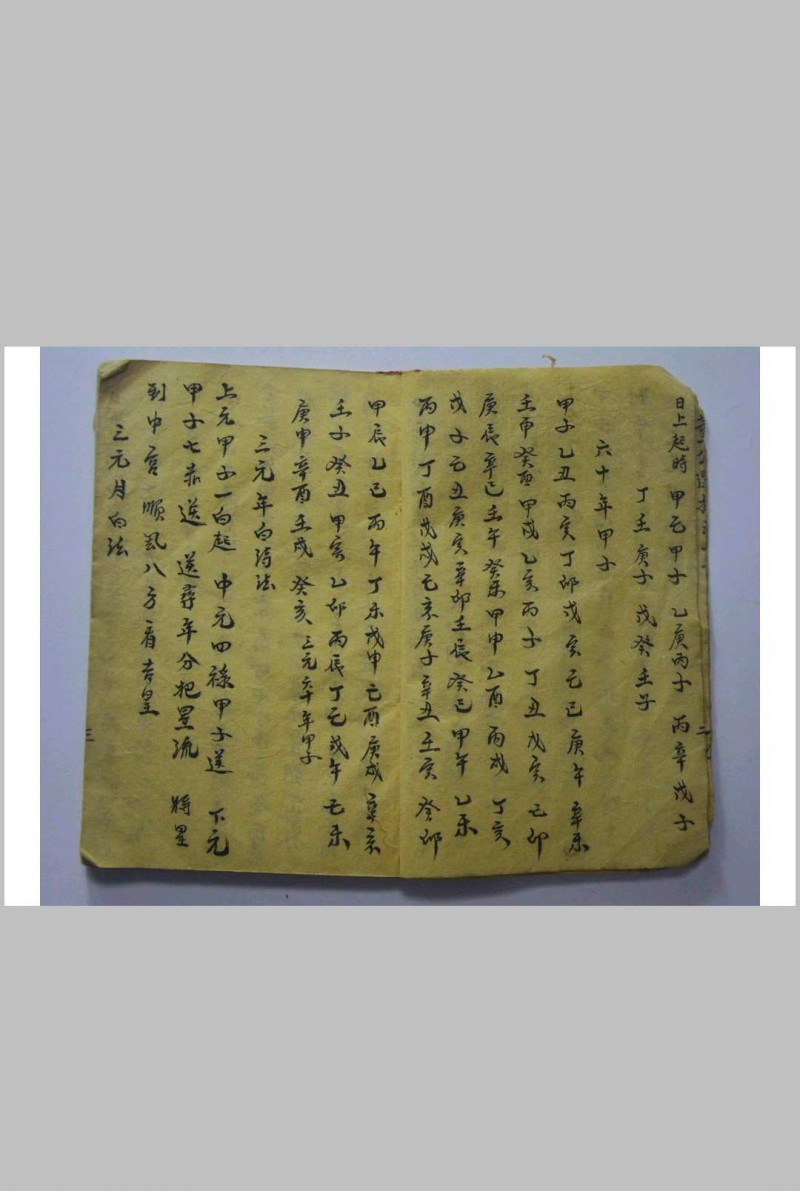 日上起時 甲己甲子 乙庚丙子 丙辛戊子
丁壬庚子 戊癸壬子
六十年甲子
甲子乙丑丙寅丁卯戊辰己巳庚午辛未
壬申癸酉甲戌乙亥丙子丁丑戊寅己卯
庚辰辛巳壬午癸未甲申乙酉丙戌丁亥
戊子己丑庚寅辛卯壬辰癸巳甲午乙未
丙申丁酉戊戌己亥庚子辛丑壬寅癸卯
甲辰乙巳丙午丁未戊申己酉庚戌辛亥
壬子癸丑甲寅乙卯丙辰丁巳戊午己未
庚申辛酉壬戌癸亥 三元六十年甲子
三元年白诗法
上元甲子一白起 中元四祿甲子送 下元
甲子七赤送 送尋年分把星流 將星
到中宮順飛八方看吉星
三元月白法
二
三